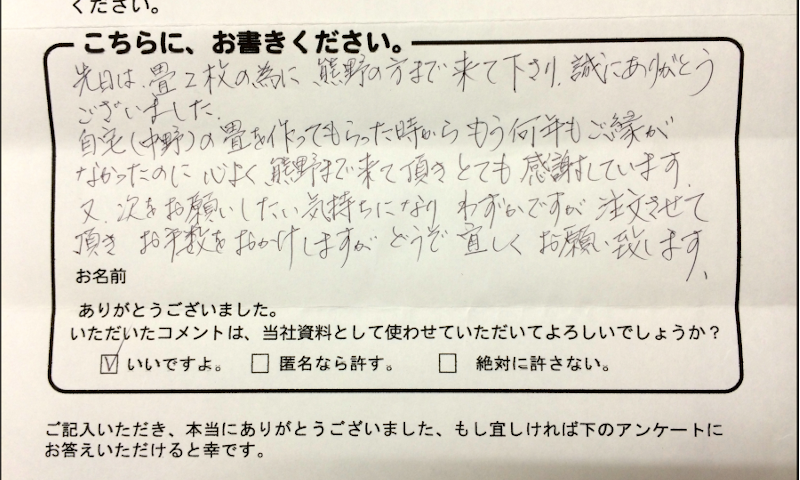 ください。
こちらに、お書きください。
先日は、畳2枚の為に 熊野の方まで来て下さり、誠にありがとう
ございました。
自宅(中野)の畳を作ってもらった時から もう何年もご縁が
なかったのに 心よく 熊野まで来て頂き とても 感謝しています。
又、次をお願いしたい気持ちになり わずかですが 注文させて
頂き お手数をおかけしますが どうぞ 宜しく お願い致します。
お名前
ありがとうございました。
いただいたコメントは、当社資料として使わせていただいてよろしいでしょうか?
いいですよ。 匿名なら許す。 絶対に許さない。
ご記入いただき、本当にありがとうございました、もし宜しければ下のアンケートに
お答えいただけると幸です。